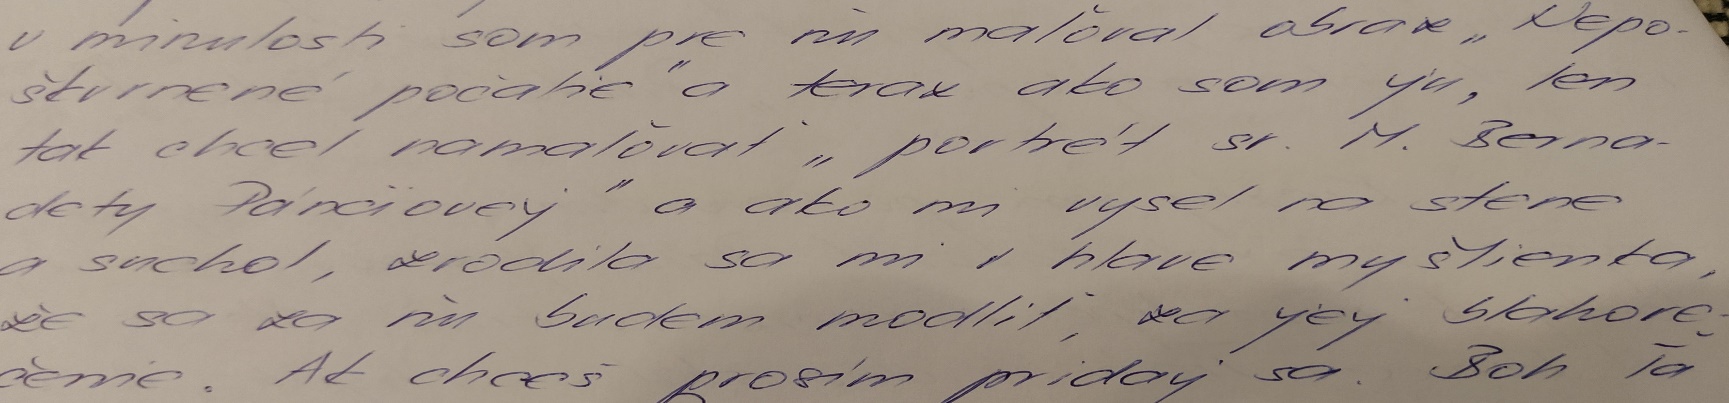 v minulosti som pre ňu maľoval obraz „Nepo-
škvrnené počatie" a teraz ako som ju, len
tak chcel namaľovať „portrét sr. M. Berna-
dety Pánčiovej" a ako mi vysel na stene
a suchol, zrodila sa mi v hlave myšlienka,
že sa za ňu budem modliť, za jej blahore-
čenie. Ak chceš prosím pridaj sa. Boh Ťa